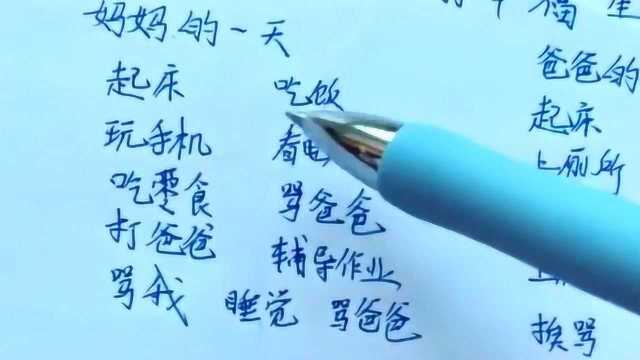 妈妈的一天
起床 吃饭
玩手机 看电
吃零食 骂爸爸
打爸爸 辅导作业
骂我 睡觉 骂爸爸
福
爸爸的
起床
上厕所
挨骂